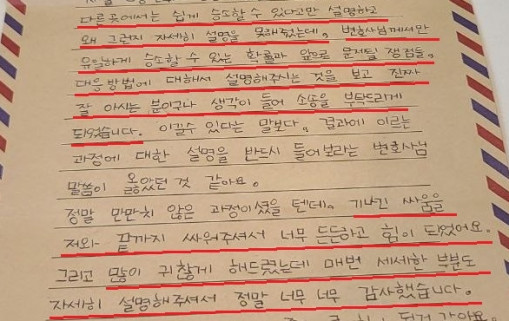 다른곳에서는 쉽게 승소할 수 있다고만 설명하고
왜 그런지 자세히 설명을 못해줬는데, 변호사님께서만
유일하게 승소할 수 있는 확률과 앞으로 문제될 쟁점들,
대응방법에 대해서 설명해주시는 것을 보고 진짜
잘 아시는 분이구나 생각이 들어 소송을 부탁드리게
되었습니다. 이길수 있다는 말보다, 결과에 이르는
과정에 대한 설명을 반드시 들어보라는 변호사님
말씀이 옳았던 것 같아요.
정말 만만치 않은 과정이셨을 텐데, 기나긴 싸움을
저와 끝까지 싸워주셔서 너무 든든하고 힘이 되었어요.
그리고 많이 귀찮게 해드렸는데 매번 세세한 부분도
자세히 설명해주셔서 정말 너무 너무 감사했습니다.